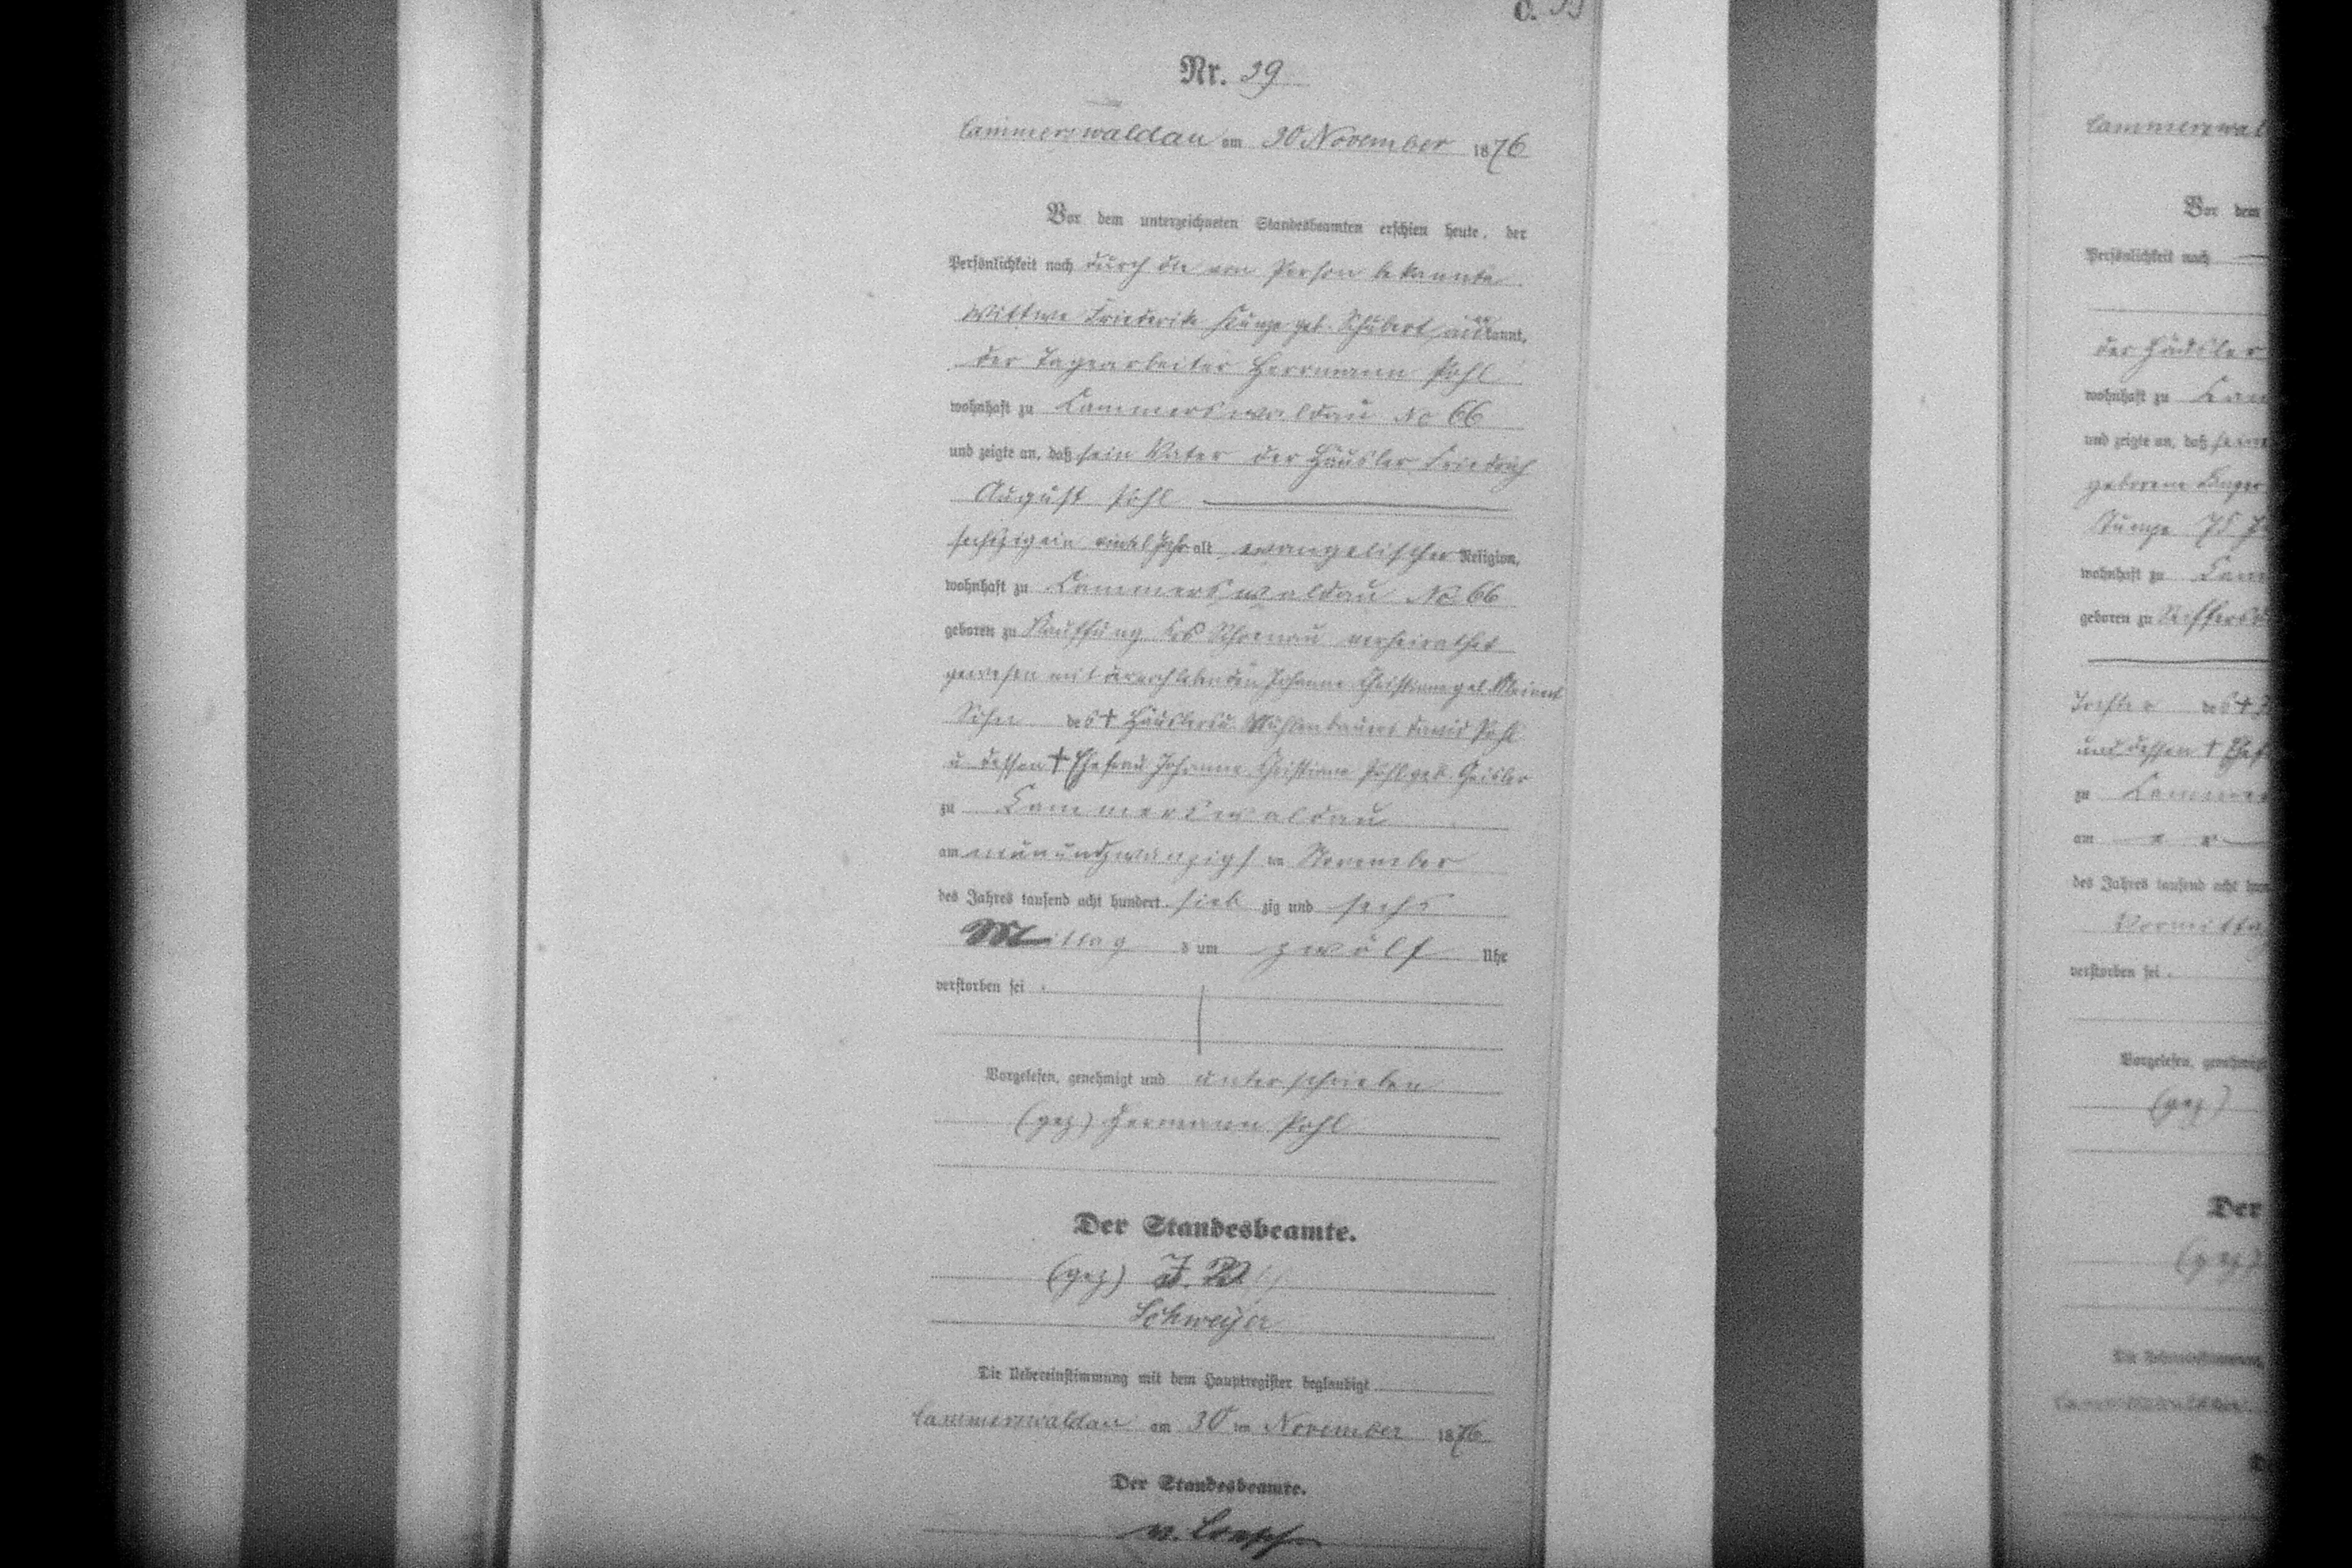 C.
Nr. 39
Cammerswaldau am 30 November 1876
Vor dem unterzeichneten Standesbeamten erschien heute, der
Persönlichkeit nach durch die von Person bekannte
Wittwe Friederike geb. Schubert kannt,
der Tagearbeiter Herrmann Pohl
wohnhaft zu Cammerswaldau No 66
und zeigte an, daß sein Vater der Häusler Friedrich
August Pohl
sechszig ein Jahr alt, evangelischer Religion,
wohnhaft zu Cammerswaldau No 66
geboren zu Kauffung Krs Schoenau verheirathet
gewesen mit der noch lebenden Johanne Christiane geb.
Sohn des † Häuslers u. Mühlenbauers David Pohl
u dessen † Ehefrau Johanne Christiane Pohl geb. Geisler
zu Cammerswaldau
am neunundzwanzigsten November
des Jahres tausend acht hundert sieb zig und sechs
Mittag s um zwölf Uhr
verstorben sei
Vorgelesen, genehmigt und unterschrieben
(gez) Hermann Pohl
Der Standesbeamte.
(gez) J. V.
Schweyer
Die Uebereinstimmung mit dem Hauptregister beglaubigt
Cammerswaldau am 30 ten November 1876
Der Standesbeamte.
v. Loesch
Cammerswal
Vor dem
Persönlichkeit nach
der Häusler
wohnhaft zu Cam
und zeigte an, daß seine
geborene
wohnhaft zu Cam
geboren zu
Tochter des †
und dessen † Ehef
zu Cammer
am
des Jahres tausend acht hun
Vormittag
verstorben sei
Vorgelesen, genehmigt
(gez)
Der
(gez)
Die Uebereinstimmung